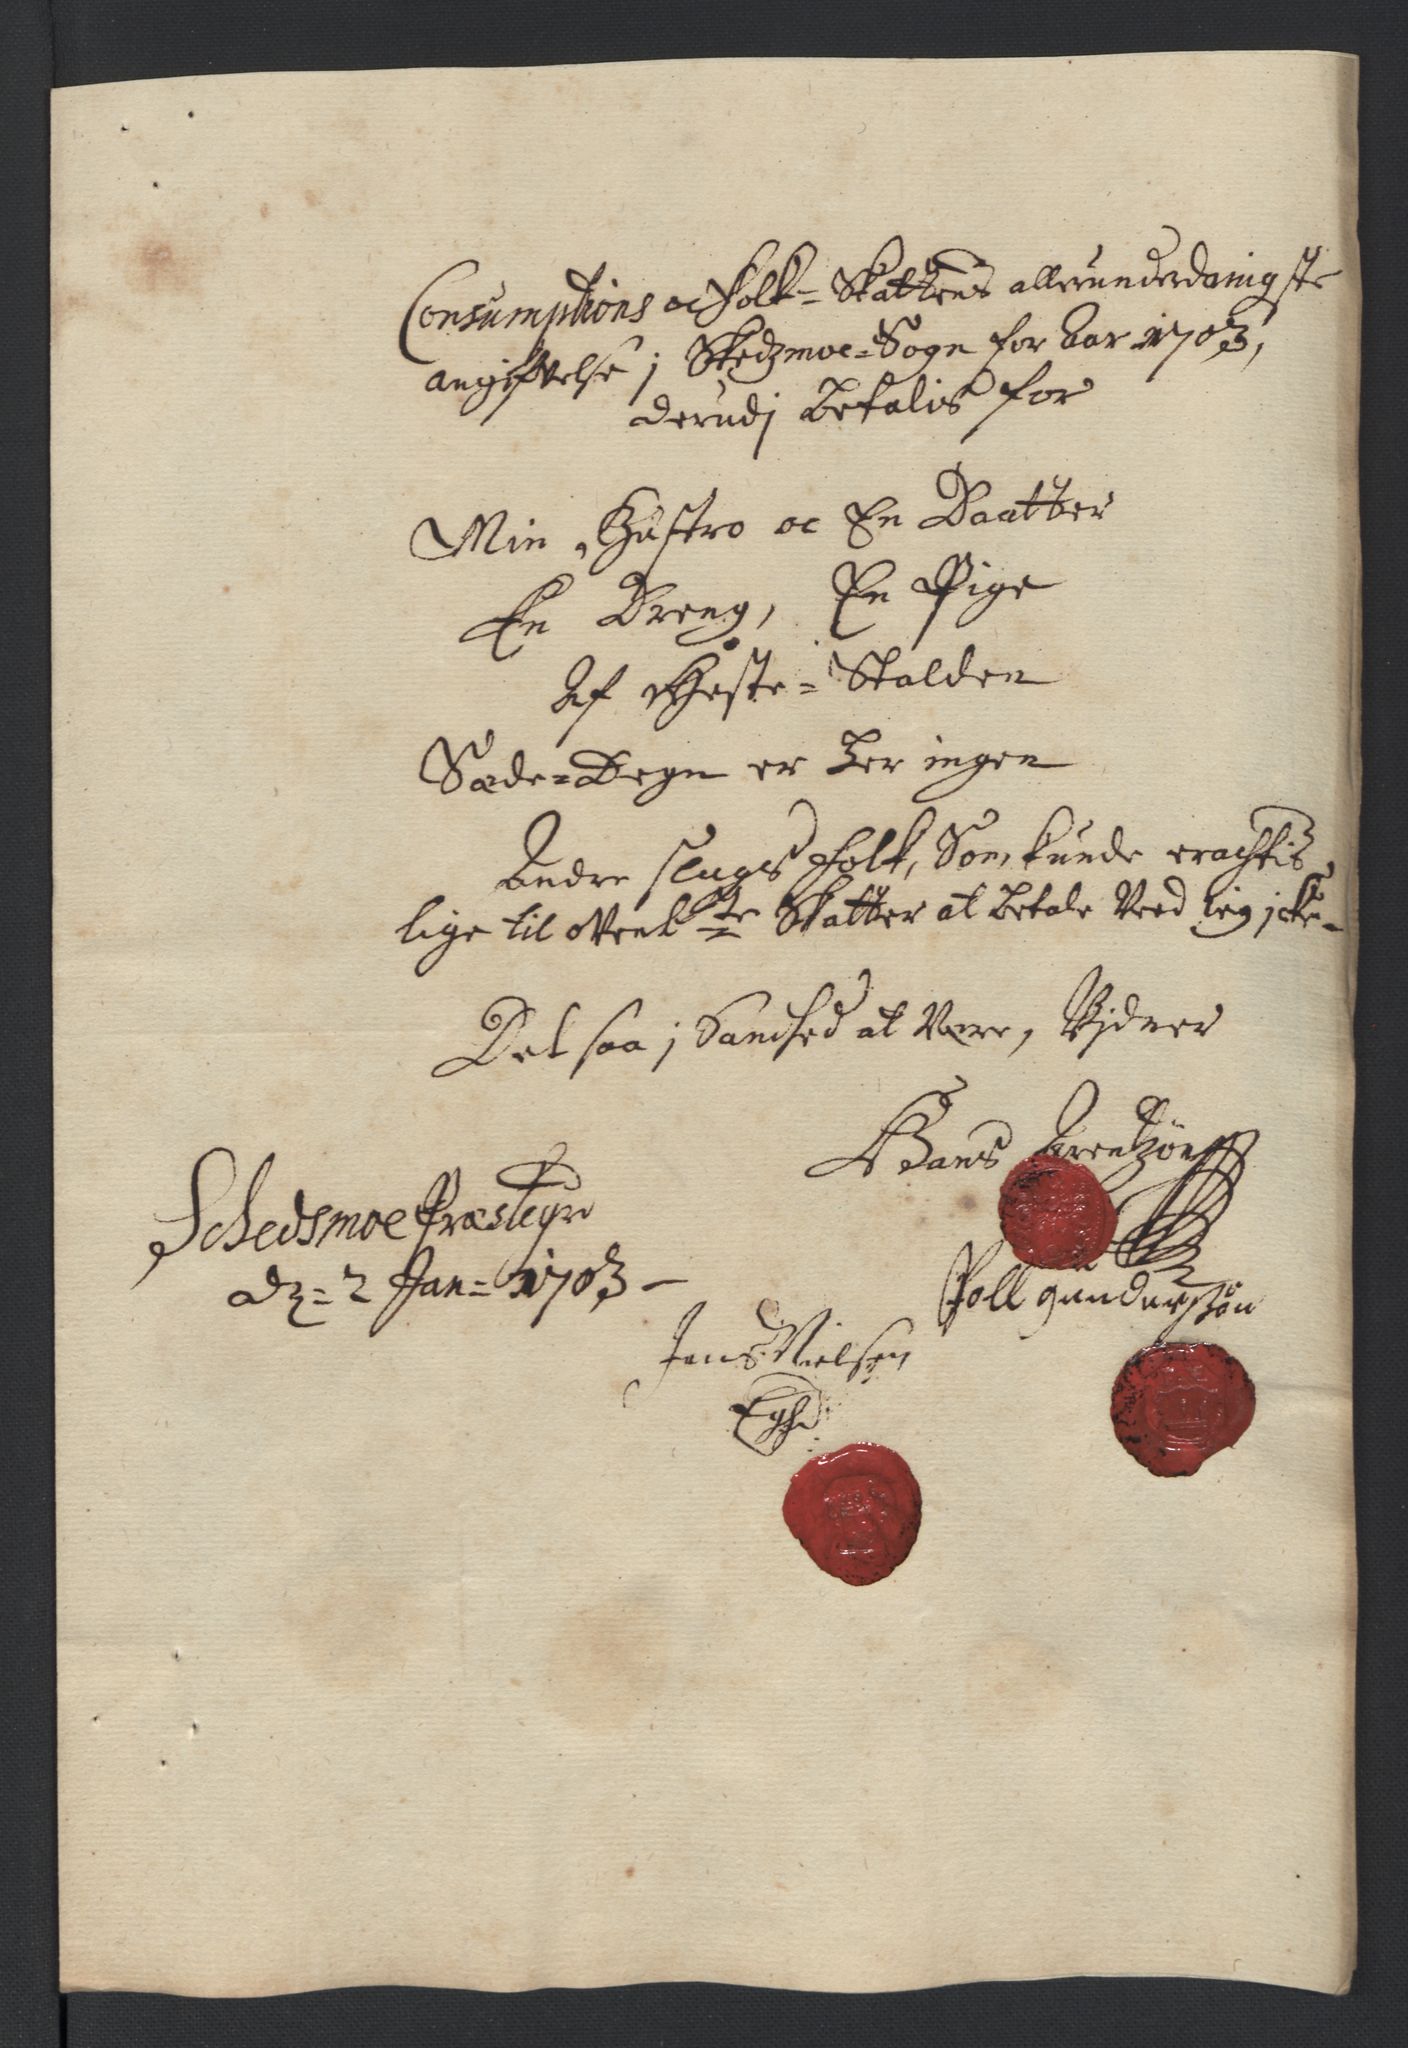 Consumptions oc Folk= Skattens allerunderdanigste
angifvelse j Skedzmoe=Sogn for Aar 1703,
derudj betalis for
Min Hustro oc En Daatter
En Dreng, En Pige
Af Heste=Stalden
Sæde=Degn er her ingen
Andre slags Folk, Som kunde eractis
lige til ovenb:te Skatter at betale Veed ieg icke-
Det saa j Sandhed at Være, Vidner
Hans Arentzøn
Schedsmoe Præstegrd
dz= 2 Jan= 1703-
Poll gundersøn
Jens Nielsen
Eghd